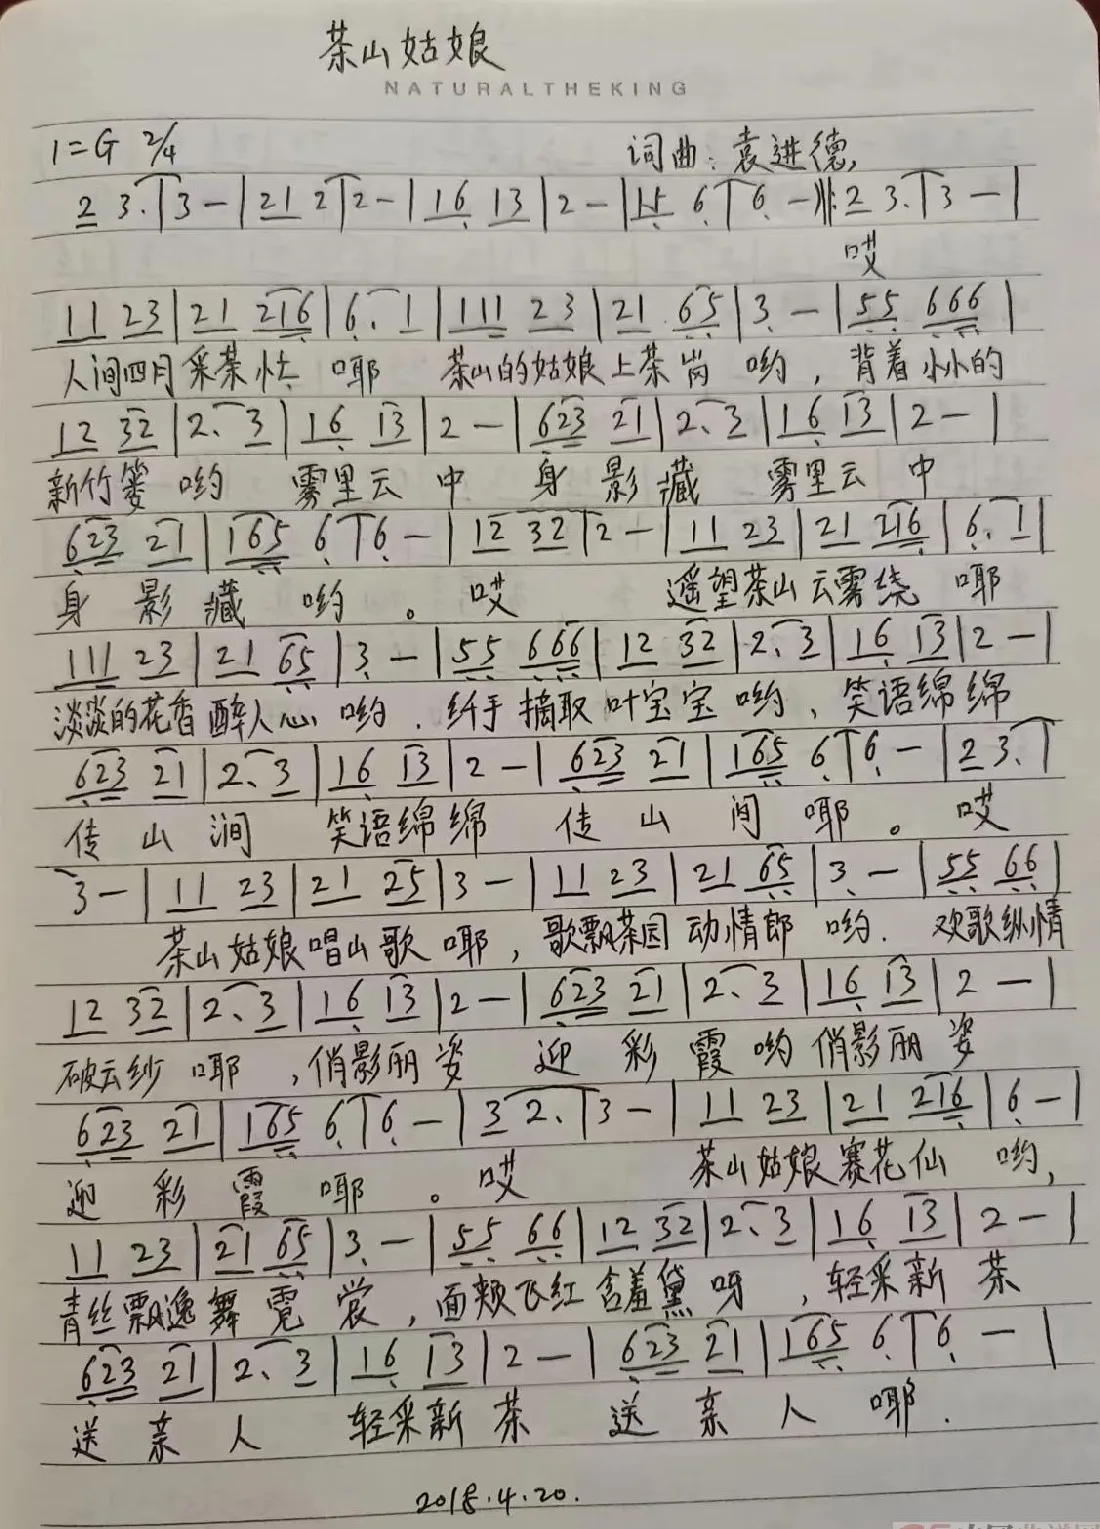 茶山姑娘
NATURALTHEKING
1=G 2/4 词曲:袁进德
2 3.|3-|21 2|2-|16 13|2-|15 6|6-‖:2 3.|3-|
哎
11 23|21 216|6. 1|111 23|21 65|3-|55 666|
人间四月采茶忙 耶 茶山的姑娘上茶岗 哟,背着小小的
12 32|2. 3|16 13|2-|623 21|2. 3|16 13|2-|
新竹篓 哟 雾里云 中 身 影 藏 雾里云 中
623 21|165 6|6-|12 32|2-|11 23|21 216|6. 1|
身 影 藏 哟。哎 遥望茶山云雾绕 耶
111 23|21 65|3-|55 666|12 32|2. 3|16 13|2-|
淡淡的花香醉人心 哟.纤手摘取叶宝宝 哟、笑语绵绵
623 21|2. 3|16 13|2-|623 21|165 6|6-|2 3.|
传 山 涧 笑语绵绵 传 山 间 耶。哎
3-|11 23|21 25|3-|11 23|21 65|3-|55 66|
茶山姑娘唱山歌 耶,歌飘茶园动情郎 哟.欢歌纵情
12 32|2. 3|16 13|2-|623 21|2. 3|16 13|2-|
破云纱 耶,俏影丽 姿 迎 彩 霞 哟 俏影丽 姿
623 21|165 6|6-|3 2.|3-|11 23|21 216|6-|
迎 彩 霞 耶。哎 茶山姑娘赛花仙 哟,
11 23|21 65|3-|55 66|12 32|2. 3|16 13|2-|
青丝飘逸舞 霓 裳,面颊飞红含羞黛 呀,轻采新 茶
623 21|2. 3|16 13|2-|623 21|165 6|6-|
送 亲 人 轻采新 茶 送 亲 人 耶.
2018.4.20.